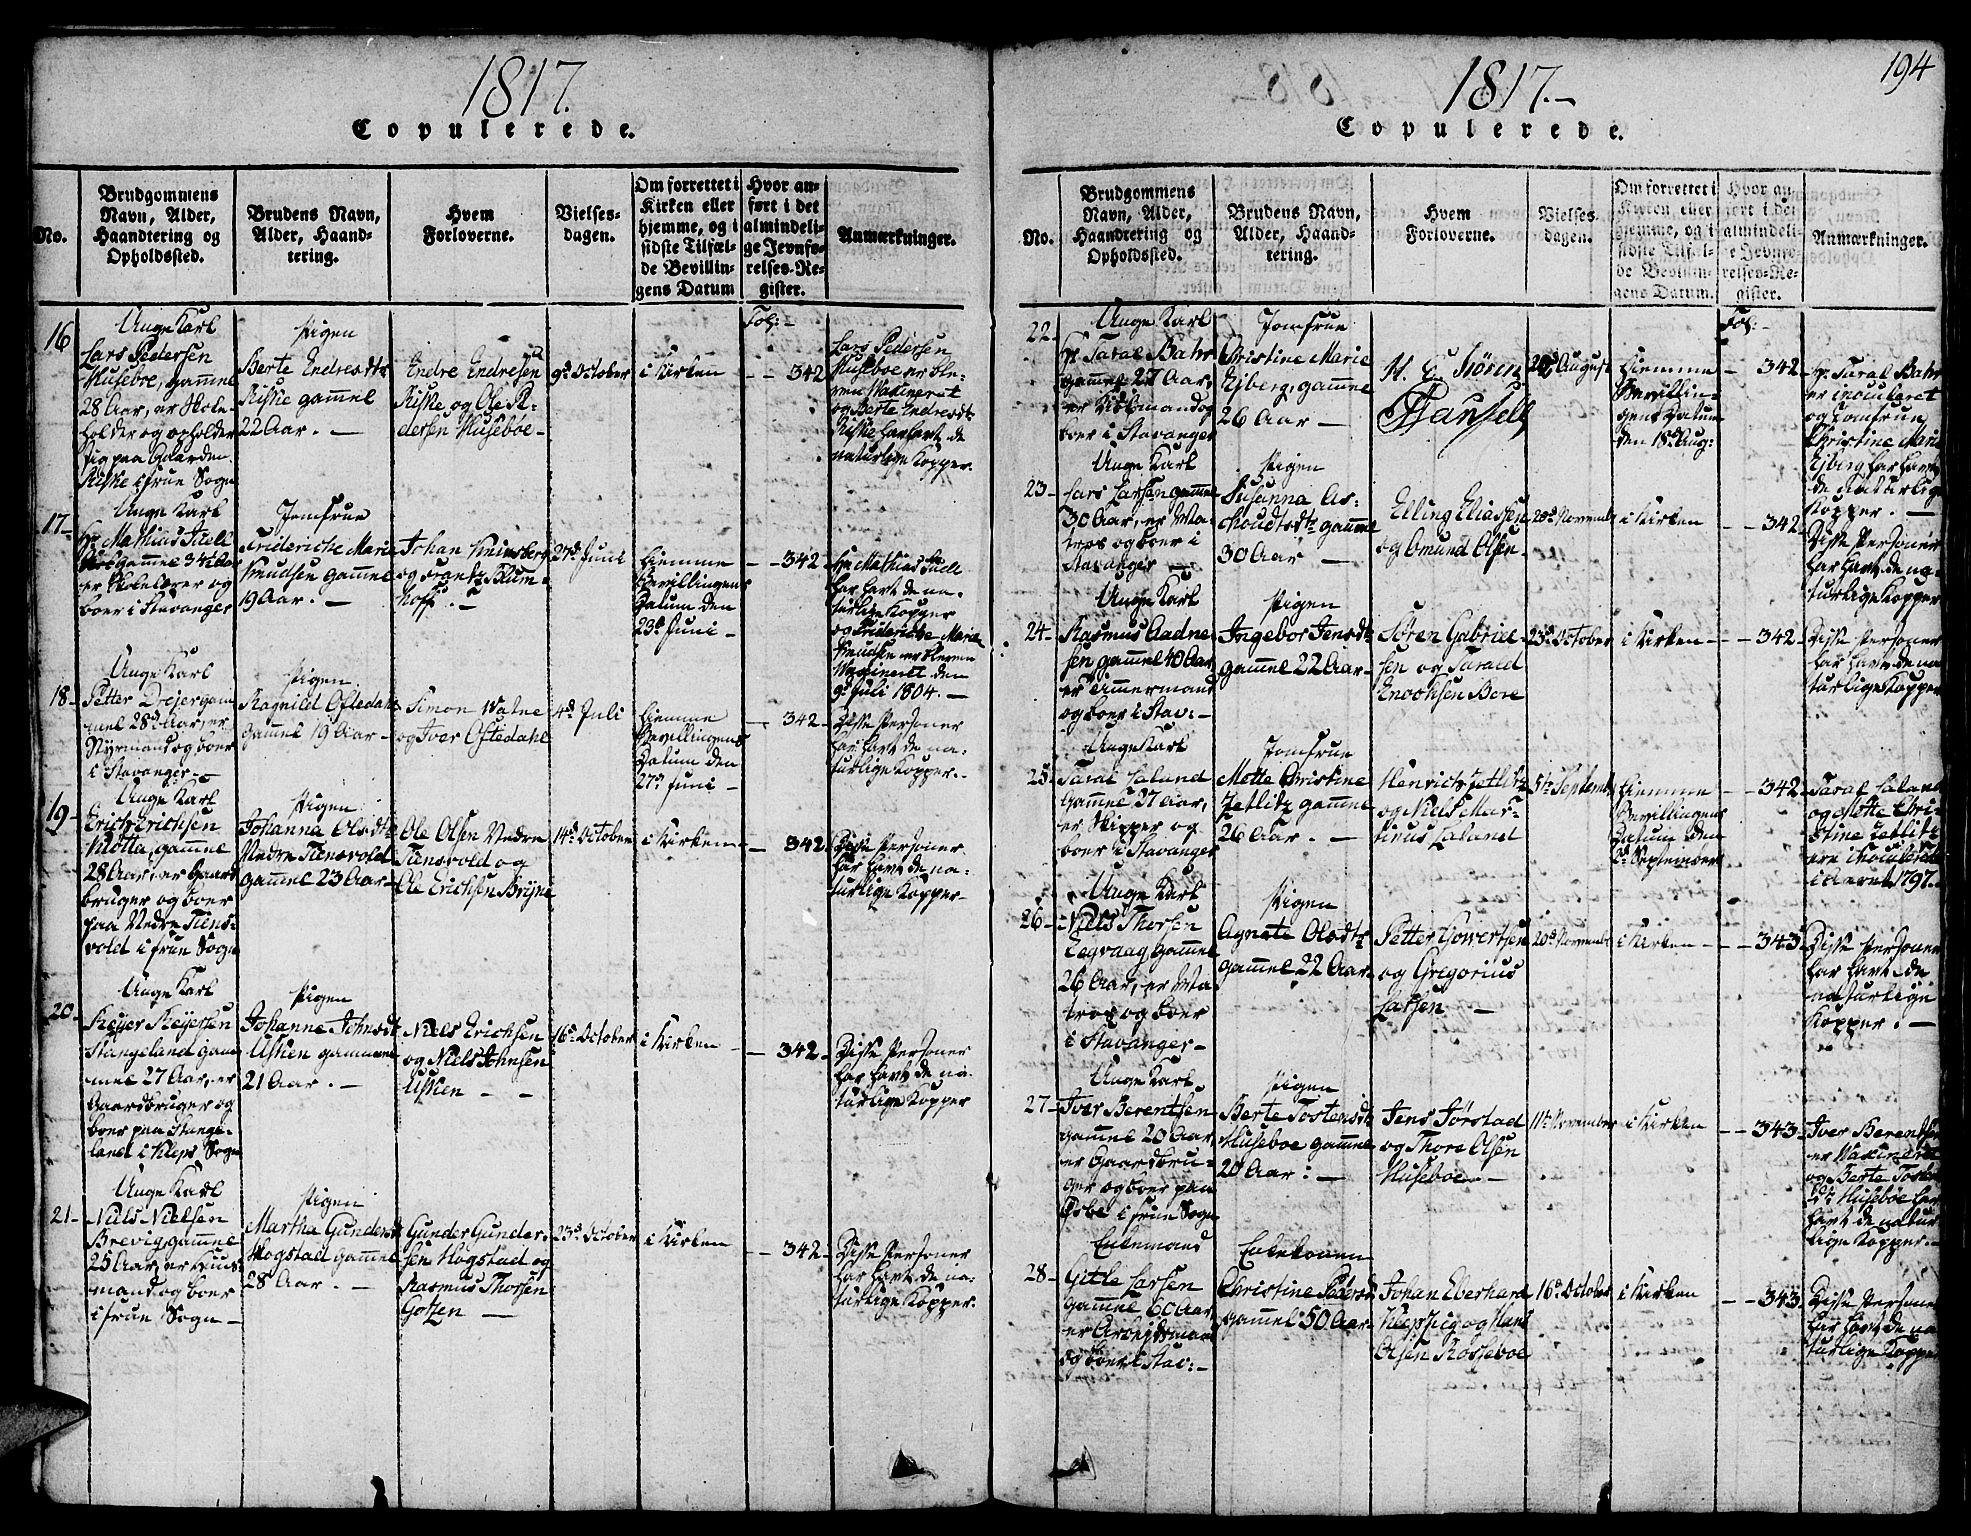 1817.
Copulerede.
No.
Brudgommens
Navn, Alder,
Haandtering og
Opholdssted.
Brudens Navn,
Alder, Haand-
tering.
Hvem
Forloverne.
Vielses-
dagen.
Om forrettet i
Kirken eller
hjemme, og i
sidste Tilfæl-
de Bevillin-
gens Datum
Hvor an-
ført i det
almindeli-
ge Jevnfø-
relses-Re-
gister.
Anmærkninger.
Fol:
16
Unge Karl
Lars Pedersen
Huseboe, gammel
28 Aar, er Skole-
holder og opholder
sig paa Gaarden
Riske i frue Sogn
Pigen
Berte Endresdtr
Riske gammel
22 Aar. —
Endre Endresen
Riske, og Ole Pe-
dersen Huseboe -
9de October
i Kirken
342
Lars Pedersen
Huseboe er ble-
ven Vaxineret
og Berte Endresdtr
Riske har havt de
naturlige Kopper.
17
Unge Karl
Hr Mathias Juell
gammel 34 Aar
er Skolelærer og
boer i Stavanger
Jomfrue
Frideriche Marie
Knudsen gammel
19 Aar. —
Johan
og Frantz Blum-
hoff. —
27de Juni
Hiemme
Bevillingens
Datum den
23de Juni -
342
Hr Mathias Juell
har havt de na-
turlige Kopper
og Frideriche Marie
Knudsen er bleven
Vaxineret den
9de Juli 1804. —
18
Unge Karl
Petter Dreyer gam-
mel 28 Aar, er
Styrmand og boer
i Stavanger. —
Pigen
Ragnild Oftedahl
gammel 19 Aar -
Simon Watne
og Iver Oftedahl
4de Juli
Hiemme
Bevillingens
Datum den
27de Juni -
342
Disse Personer
har havt de na-
turlige Kopper. -
19
Unge Karl
Erich Erichsen
Motta, gammel
28 Aar, er Gaard-
bruger og boer
paa Nedre Tiens-
vold i frue Sogn
Pigen
Johanna Olsdtr
Nedre Tiensvold
gammel 23 Aar -
Ole Olsen Nedre
Tiensvold og
Ole Erichsen Bryne
14de October
i Kirken
342
Disse Personer
har havt de na-
turlige Kopper -
20
Unge Karl
Reyer Reyersen
Stangeland gam-
mel 27 Aar, er
Gaardbruger og
boer paa Stange-
land i Kleps Sogn
Pigen
Johanne Johnsdtr
Usken gammel
21 Aar. —
Niels Erichsen
og Niels Johnsen
Usken
16de October
i Kirken
342
Disse Personer
har havt de na-
turlige Kopper
21
Unge Karl
Niels Nielsen
Brevig, gammel
25 Aar, er Huus-
mand og boer
i frue Sogn —
Pigen
Martha Gundersdtr
Hogstad gammel
28 Aar. —
Gunder Gunder-
sen Hogstad og
Rasmus Thorsen
Gotzen —
23de October
i Kirken
342
Disse Personer
har havt de na-
turlige Kopper.
194
1817.—
Copulerede.
No.
Brudgommens
Navn, Alder,
Haandtering og
Opholdssted.
Brudens Navn,
Alder, Haand-
tering.
Hvem
Forloverne.
Vielses-
dagen.
Om forrettet i
Kirken eller
hjemme, og i
sidste Tilfæl-
de Bevillin-
gens Datum.
Hvor an-
ført i det
almindeli-
ge Jevnfø-
relses-Re-
gister.
Anmærkninger.
Fol:
22
Unge Karl
Hr Taral Bahr
gammel 27 Aar,
er Kiøbmand og
boer i Stavanger
Jomfrue
Christine Marie
Ejberg, gammel
26 Aar —
August
Hiemme
Bevillin-
gens Datum
den 18de Aug:
342
Hr Taral Bahr
er inoculeret
og Jomfrue
Christine Marie
Ejberg har havt
de naturlige
Kopper. —
23
Unge Karl
Lars Larsen gammel
30 Aar, er Ma-
tros og boer i
Stavanger —
Pigen
Susanna As-
gammel
30 Aar —
Elling Eliassen
og Omund Olsen
20de November
i Kirken
342
Disse Personer
har havt de na-
turlige Kopper
24
Unge Karl
Rasmus Aadne-
sen gammel 40 Aar
er Timmermand
og boer i Stav: -
Pigen
Ingebor Jensdtr
gammel 22 Aar -
Søren Gabriel-
sen og Tarald
Enochsen Bore
23de October
i Kirken
342
Disse Personer
har havt de na-
turlige Kopper
25
Unge Karl
Taral Laland
gammel 37 Aar,
er Skipper og
boer i Stavanger
Jomfrue
Mette Christine
Zetlitz gammel
26 Aar. —
Henrich Zetlitz
og Niels Mar-
tinus Laland
5te September
Hiemme
Bevillingens
Datum den
2de September
342
Taral Laland
og Mette Chri-
stine Zetlitz
ere inoculerede
i Aaret 1797.
26
Unge Karl
Niels Thorsen
gammel
26 Aar, er Ma-
tros og boer
i Stavanger -
Pigen
Agnete Olsdtr
gammel 22 Aar
Petter Govertsen
og Gregorius
Larsen —
20de November
i Kirken
343
Disse Personer
har havt de
naturlige
Kopper. —
27
Unge Karl
Iver Berentsen
gammel 20 Aar
er Gaardbru-
ger og boer paa
i frue Sogn
Pigen
Berte Tostensdtr
Huseboe gammel
20 Aar: —
Jens Jørstad
og Thore Olsen
Huseboe. —
11te November
i Kirken
343
Iver Berentsen
er Vaxineret
og Berte Tosten-
sdtr Huseboe har
havt de natur-
lige Kopper. -
28
Enkemand
Gitle Larsen
gammel 60 Aar,
er Arbejdsmand
og boer i Stav: -
Enkekonen
Christine Pedersdtr
gammel 50 Aar
Johan Eberhard
Kleppig og Hans
Olsen Rosseboe
16de October
i Kirken
343
Disse Personer
har havt de na-
turlige Kopper